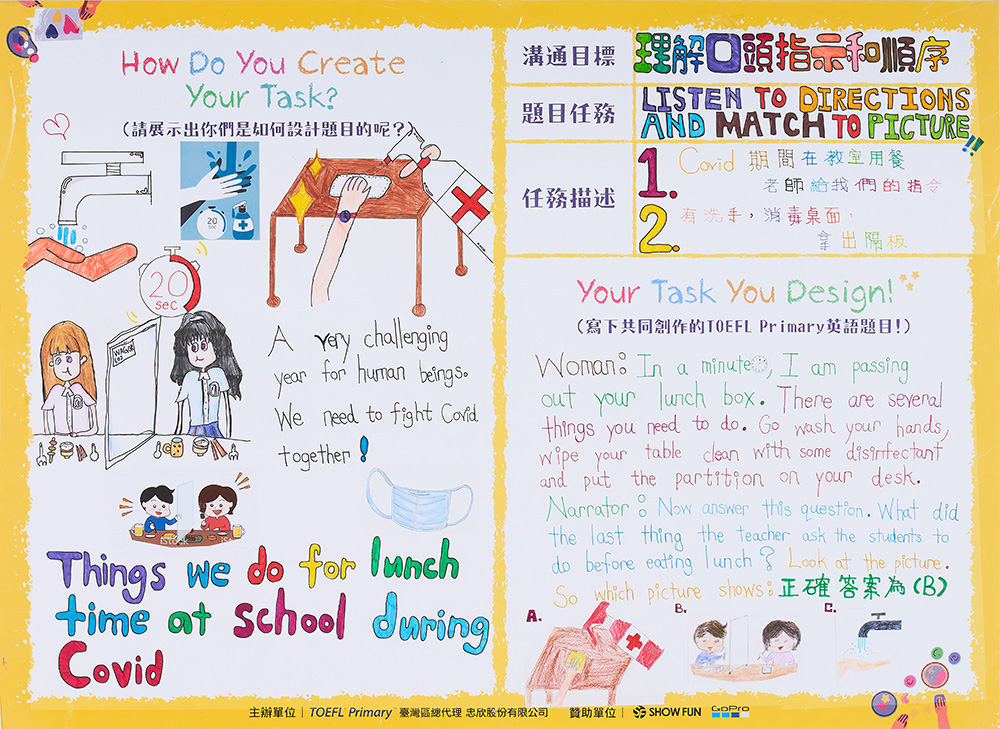 How Do You Create
Your Task?
(請展示出你們是如何設計題目的呢?)
20
sec
20
sec
A very challenging
year for human beings.
We need to fight Covid
together!
Things we do for lunch
time at school during
Covid
溝通目標
理解口頭指示和順序
題目任務
LISTEN TO DIRECTIONS
AND MATCH TO PICTURE!!
任務描述
1. Covid 期間在教室用餐
老師給我們的指令
2. 有洗手,消毒桌面,
拿出隔板
Your Task You Design!
(寫下共同創作的TOEFL Primary英語題目!)
Woman: In a minute, I am passing
out your lunch box. There are several
things you need to do. Go wash your hands,
wipe your table clean with some disinfectant
and put the partition on your desk.
Narrator: Now answer this question. What did
the last thing the teacher ask the students to
do before eating lunch? Look at the picture.
So which picture shows: 正確答案為(B)
A.
B.
C.
主辦單位 | TOEFL Primary 臺灣區總代理 忠欣股份有限公司 贊助單位 | SF SHOW FUN GoPro